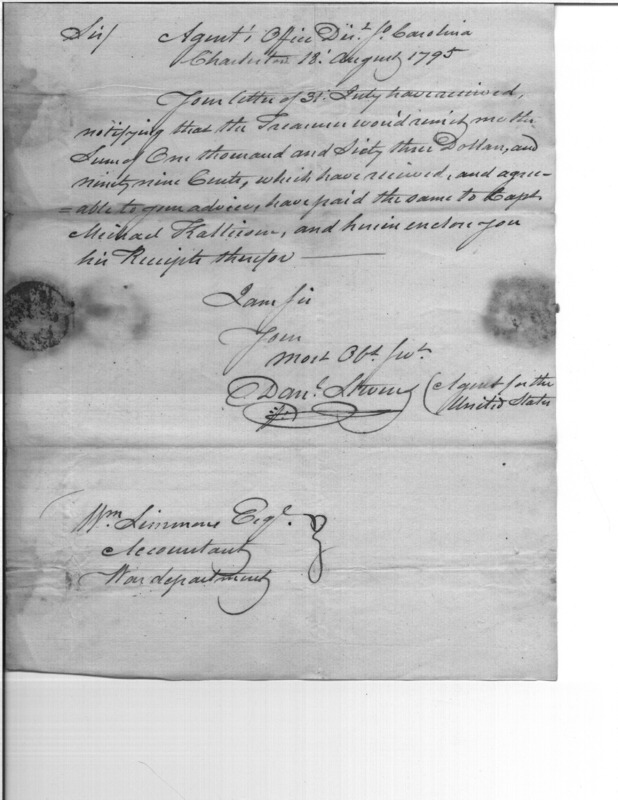 Sir/ Agent's Office Dist. So. Carolina
Charleston 18. August 1795
Your letter of 31. July have received,
notifying that the Treasurer wou'd remit me the
Sum of One thousand and Sixty three Dollars, and
ninety nine Cents, which have recieved, and agree-
=able to your advice, have paid the same to Capt.
Michael Kalteisen, and herein enclose you
his Receipts therefor
I am Sir
Your
most Obt. Svt.
Danl. Stevens (Agent for the
United States
Wm. Simmons Esqr.
Accountant
War department